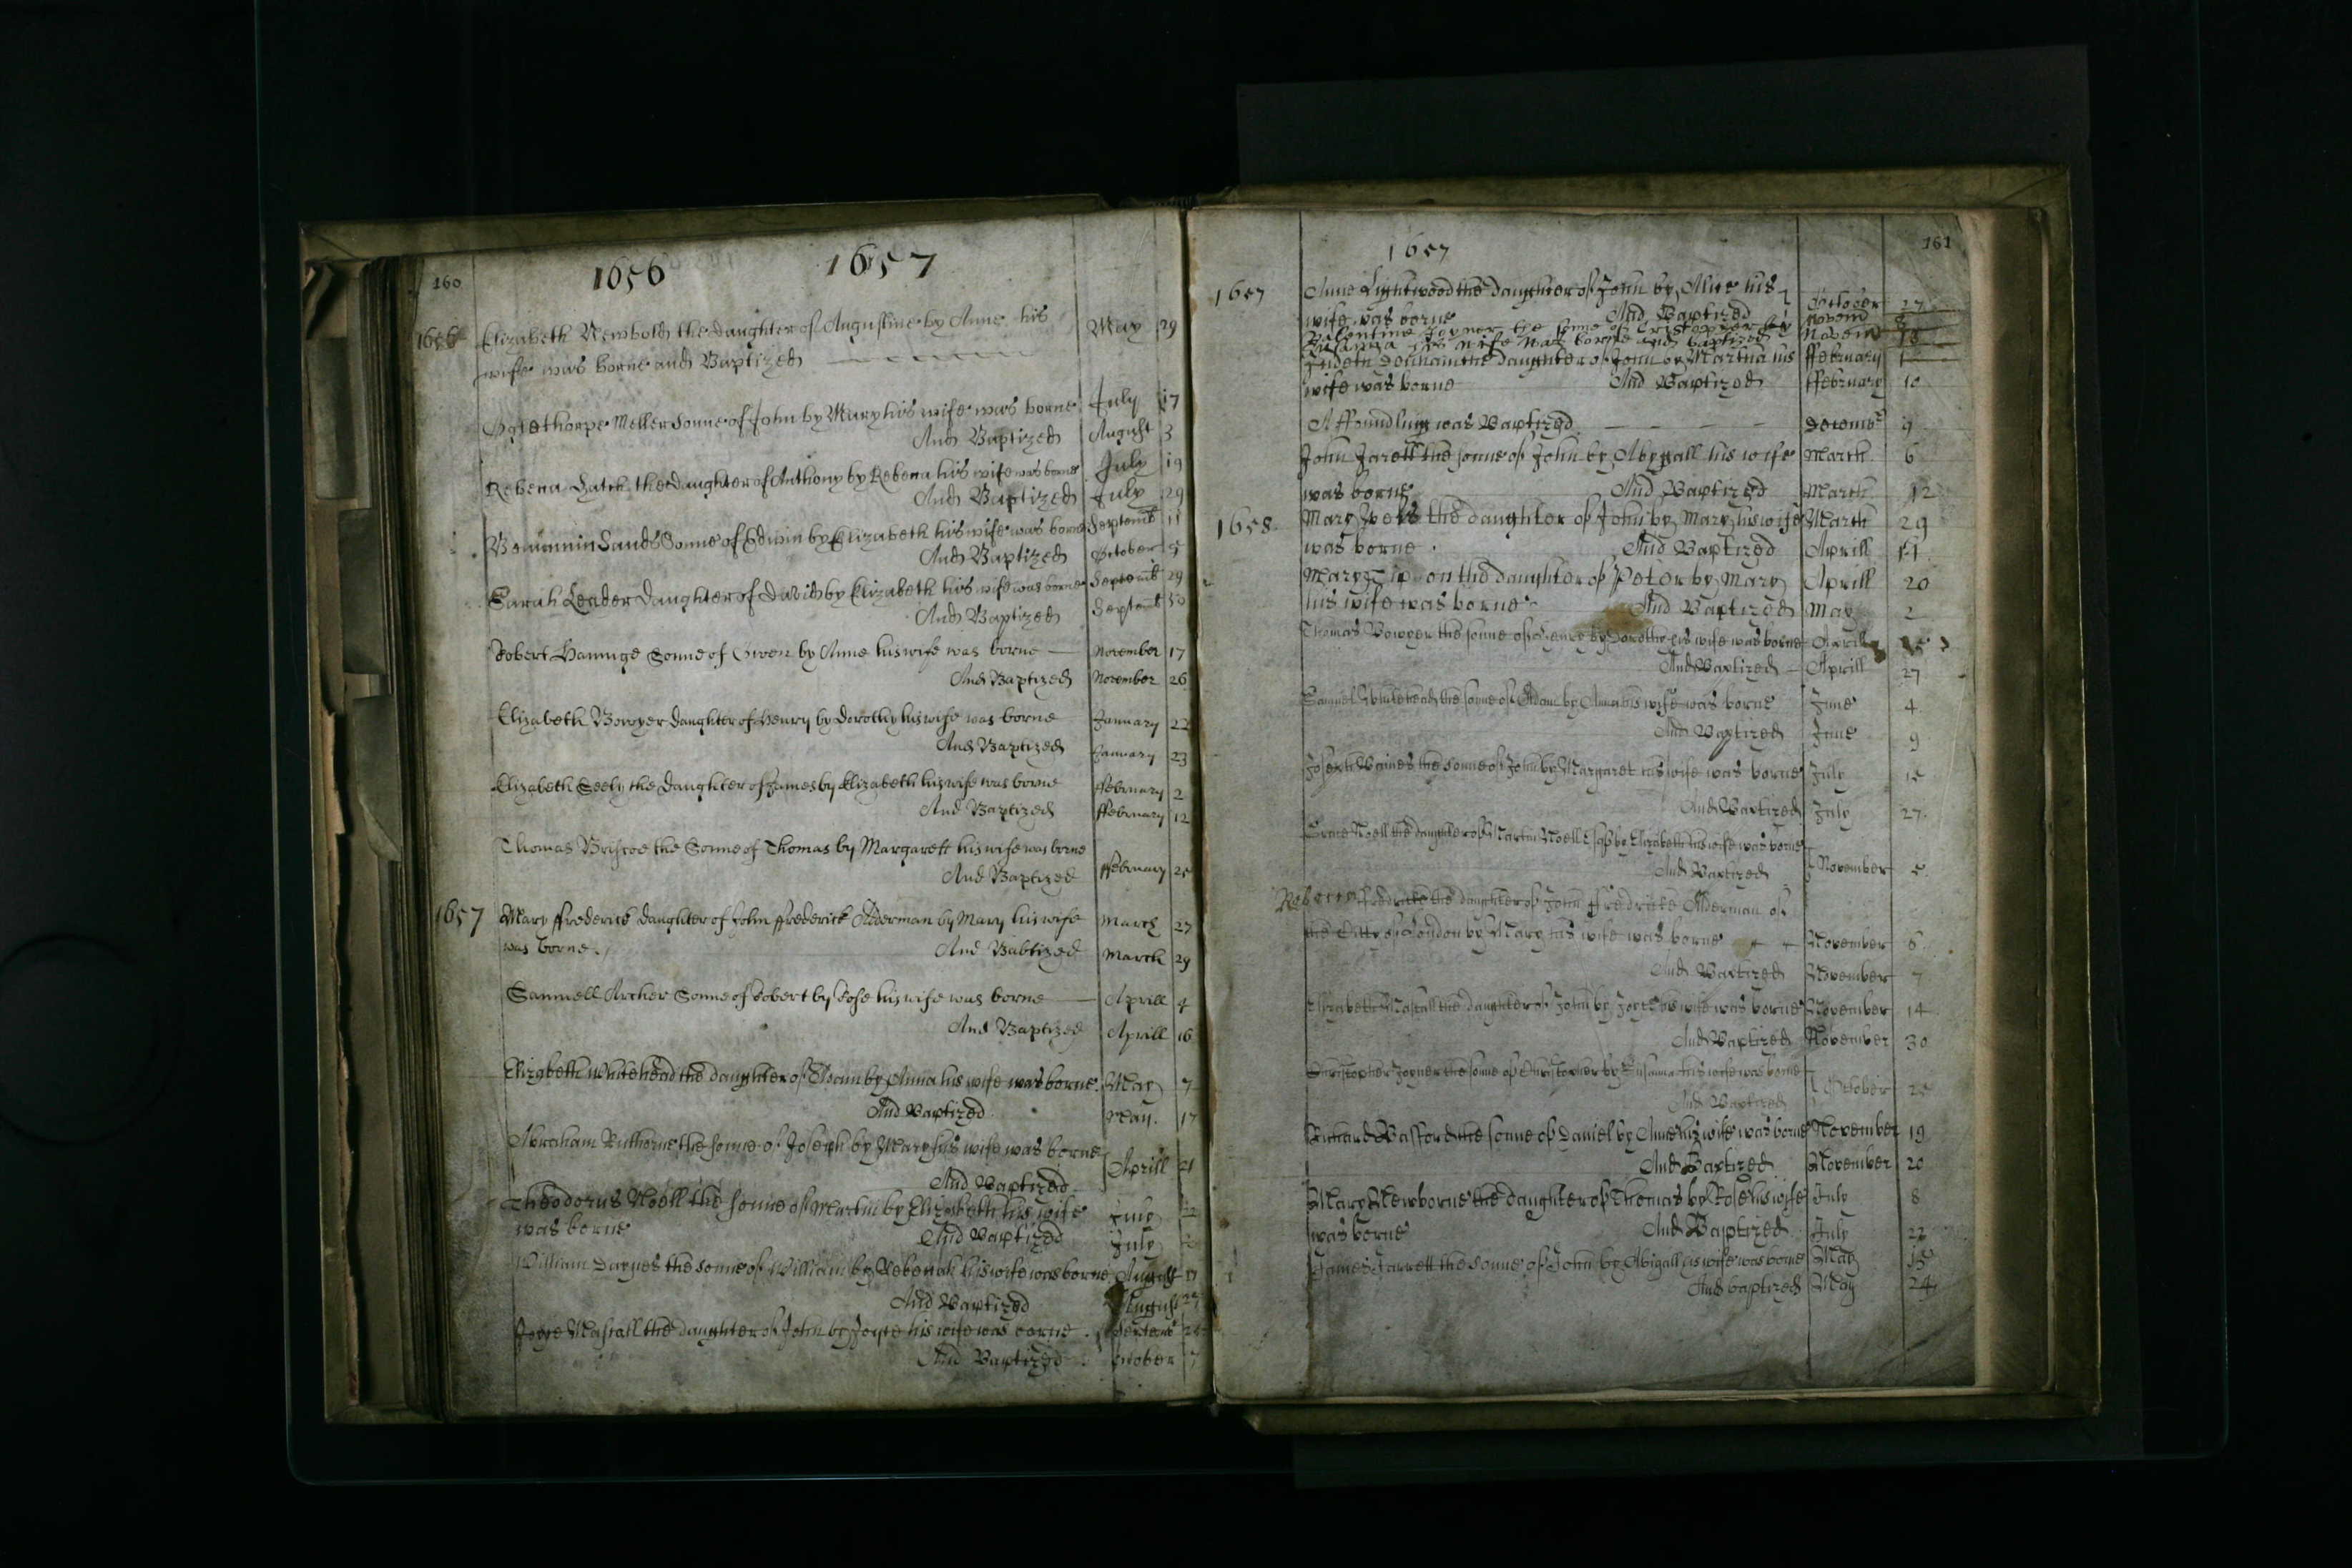 160
1656 1657
1656 Elizabeth Newbold the daughter of Augustine by Anne his May 29
wife was borne and Baptized
Oglethorpe Meller Sonne of John by Mary his wife was borne July 17
And Baptized August 3
Rebecca Hatch the daughter of Anthony by Rebecca his wife was borne July 19
And Baptized July 29
Beniamin Sands Sonne of Edwin by Elizabeth his wife was borne Septemb 11
And Baptized October 5
Sarah Leader daughter of David by Elizabeth his wife was borne Septemb 29
And Baptized Septemb 30
Robert Hannige Sonne of Owen by Anne his wife was borne November 17
And Baptized November 26
Elizabeth Bowyer daughter of Henry by Dorothy his wife was borne January 22
And Baptized January 23
Elizabeth Seely the daughter of James by Elizabeth his wife was borne ffebruary 2
And Baptized ffebruary 12
Thomas Briscoe the Sonne of Thomas by Margarett his wife was borne
And Baptized ffebruary 25
1657 Mary ffrederick daughter of John ffrederick Alderman by Mary his wife March 27
was borne. And Babtized March 29
Samuell Archer Sonne of Robert by Rose his wife was borne Aprill 4
And Baptized Aprill 16
Elizabeth Whitehead the daughter of Adam by Anna his wife was borne. May 7
And Baptized May. 17
Abraham the sonne of Joseph by Mary his wife was borne
And Baptized Aprill 21
Theodorus Noell the sonne of Martin by Elizabeth his wife
was borne And Baptized July
William Darnes the sonne of William by Rebecah his wife was borne August 17
And Baptized August 27
Joyce Mascall the daughter of John by Joyce his wife was borne.
And Baptized October 7
161
1657
1657 Anne Lightwood the daughter of John by Alice his October 27
wife was borne And Baptized Novem
Valentine Joyner the sonne of Cristopher by Novem
Susanna his wife was borne and baptized
Judeth the daughter of John by Martha his ffebruary 1
wife was borne And Baptized ffebruary 10
A ffoundling was Baptized Decembr 9
John Jarett the sonne of John by Abygall his wife March 6
was borne And Baptized March 12
1658 Mary the daughter of John by Mary his wife March 29
was borne. And Baptized Aprill 11
Mary the daughter of Peter by Mary Aprill 20
his wife was borne And Baptized May 2
Thomas Bowyer the sonne of Henry by Dorothy his wife was borne Aprill
And Baptized Aprill 27
Samuel Whitehead the sonne of Adam by Anna his wife was borne June 4
And Baptized June 9
Joseph Baines the sonne of John by Margaret his wife was borne July 15
And Baptized July 27
Grace Noell the daughter of Martin Noell Esqr by Elizabeth his wife was borne
And Baptized November 5
Rebecca ffredricke the daughter of John ffredricke Alderman of
the Citty of London by Mary his wife was borne November 6
And Baptized November 7
Elizabeth Mascall the daughter of John by Joyce his wife was borne November 14
And Baptized November 30
Christopher Joyner the sonne of Christopher by Susanna his wife was borne
And Baptized October 25
Richard Bafford the sonne of Daniel by Anne his wife was borne November 19
And Baptized November 20
Mary Newborne the daughter of Thomas by Rose his wife July 8
was borne And Baptized July 22
James Jarrett the sonne of John by Abigall his wife was borne May 15
And baptized May 24